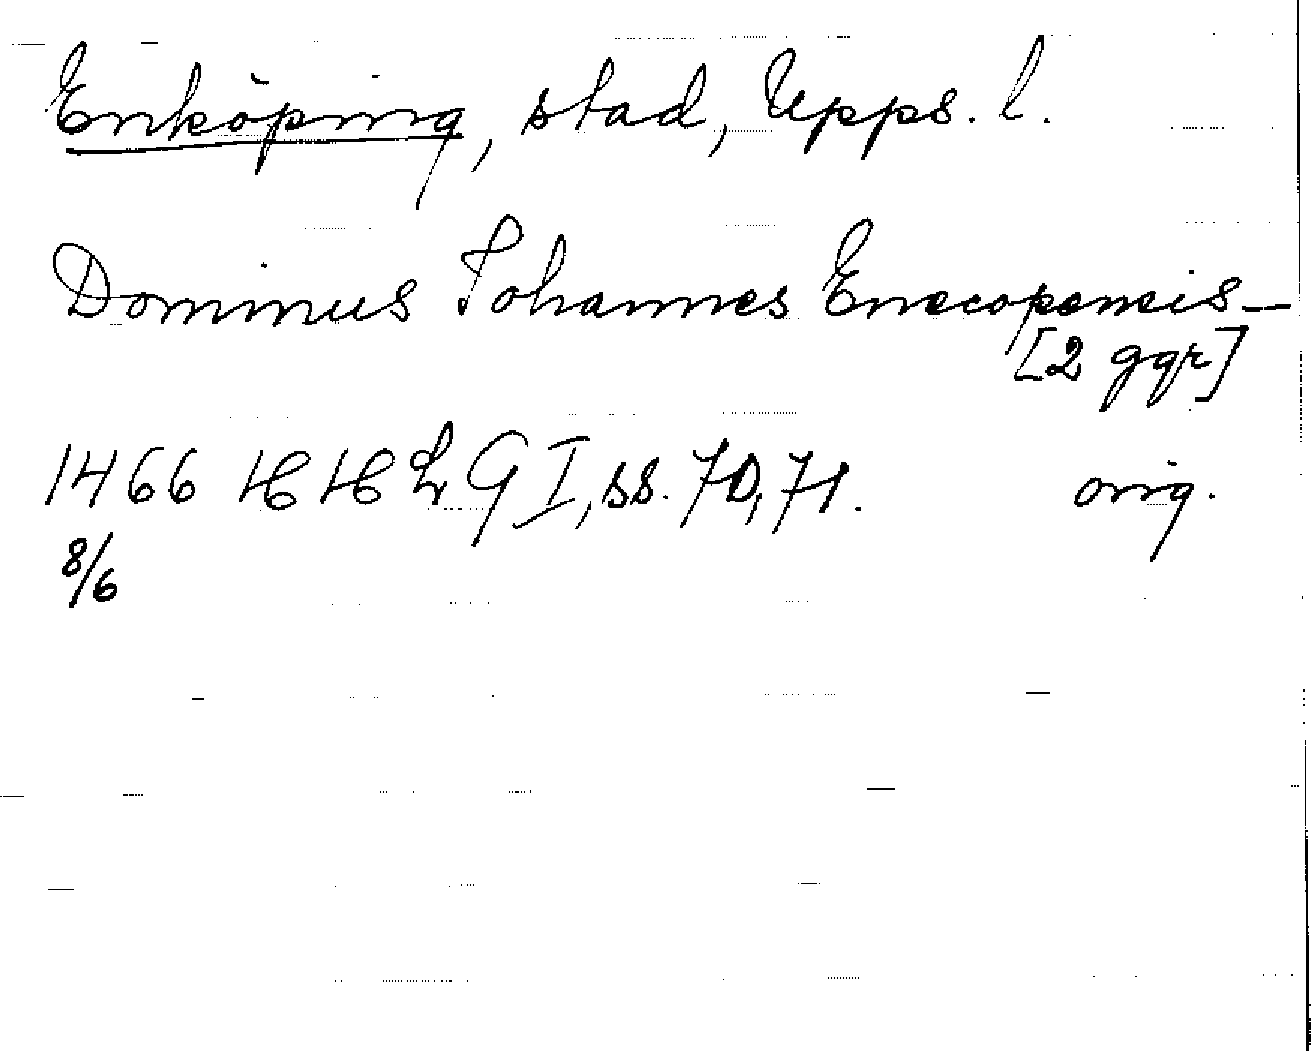 Enköping, stad, Upps. l.
Dominus Johannes Enecopensis –
[2 ggr]
1466 HH Lg I, ss. 70, 71. orig.
8/6